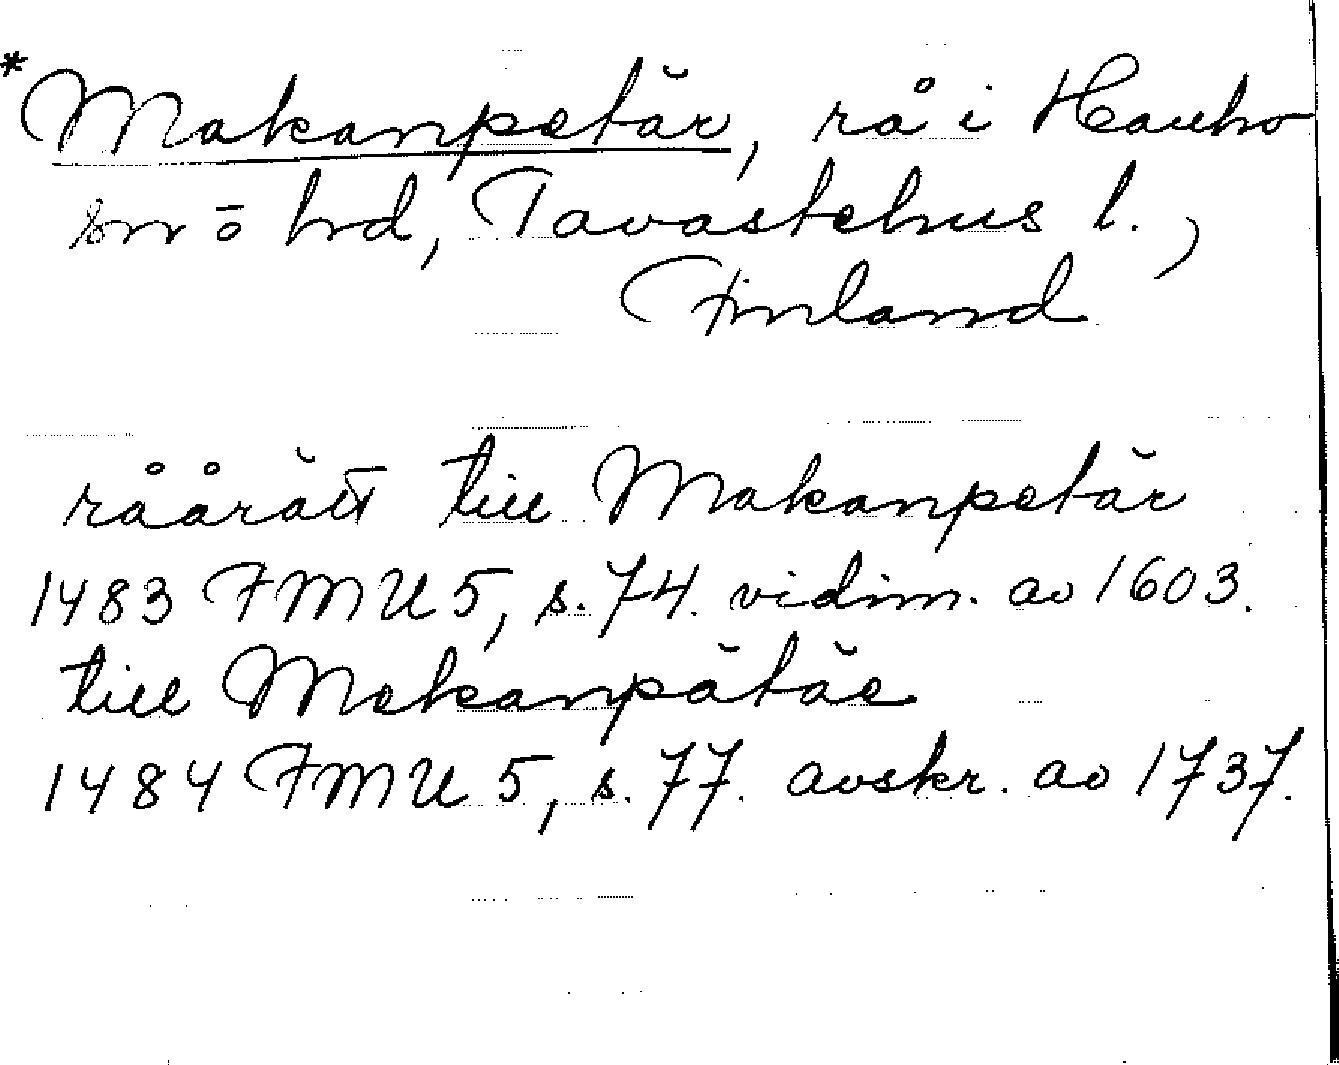 *Makanpetär, rå i Hauho
sn o hd, Tavastehus l.,
Finland
råårätt till Makanpetär
1483 FMU 5, s. 74. vidim. av 1603.
till Mekanpätäe
1484 FMU 5, s. 77. avskr. av 1737.